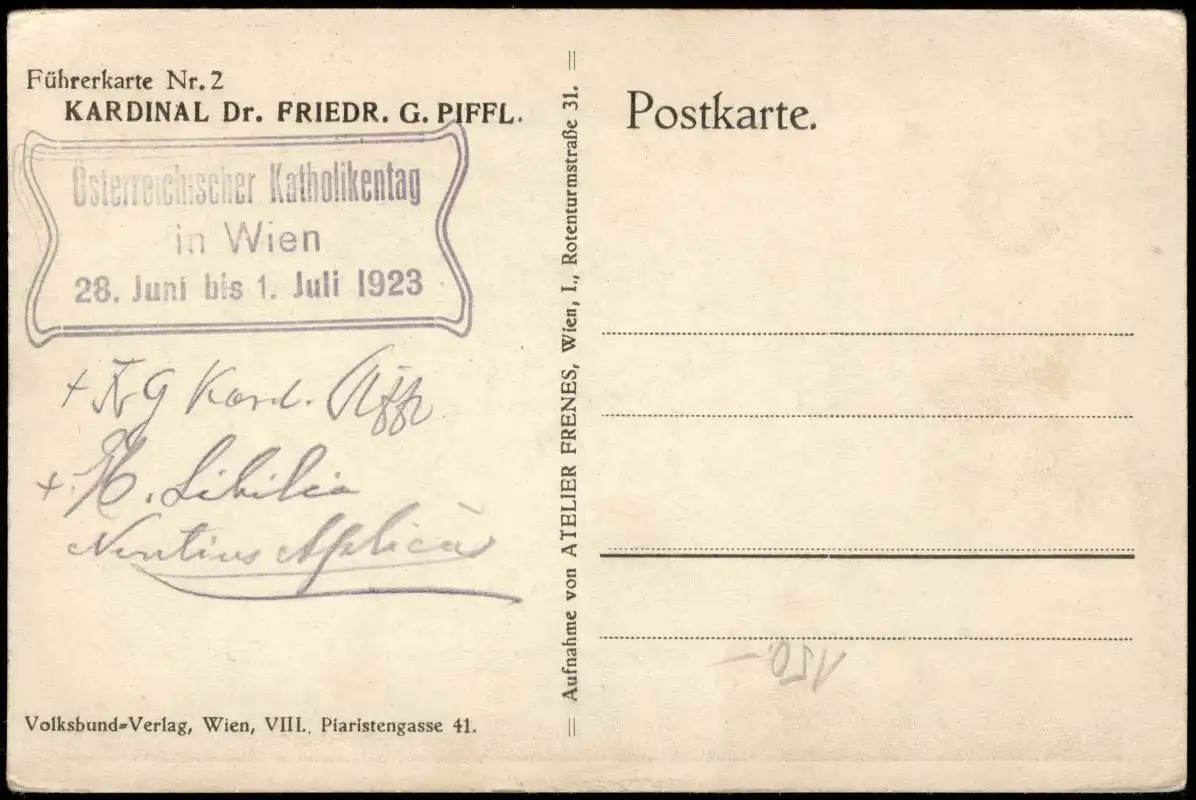 Führerkarte Nr. 2
KARDINAL Dr. FRIEDR. G. PIFFL.
Österreichischer Katholikentag
in Wien
28. Juni bis 1. Juli 1923
+ Fr G Kard. Piffl
+ H. Sibilia
Nuntius Aplicus
Volksbund=Verlag, Wien, VIII., Piaristengasse 41.
= Aufnahme von ATELIER FRENES, Wien, I., Rotenturmstraße 31. =
Postkarte.
150.-